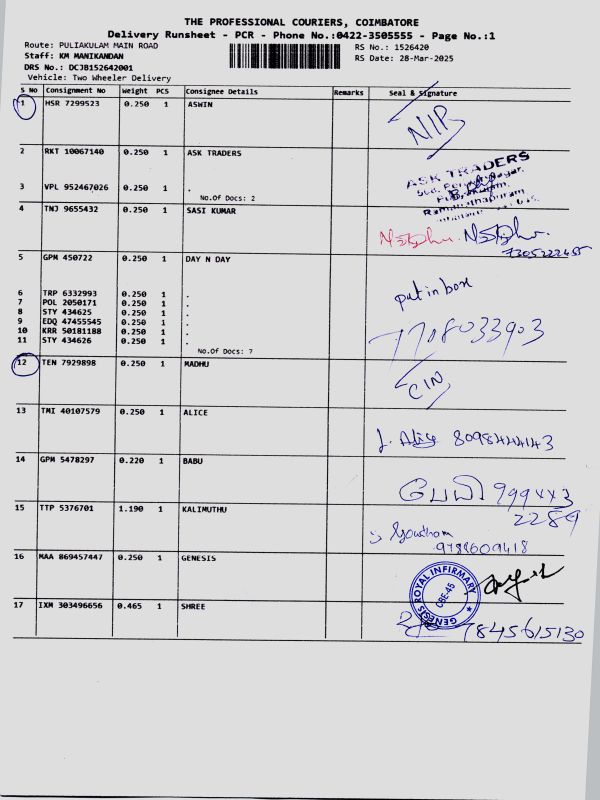 THE PROFESSIONAL COURIERS, COIMBATORE
Delivery Runsheet - PCR - Phone No.:0422-3505555 - Page No.:1
Route: PULIAKULAM MAIN ROAD RS No.: 1526420
Staff: KM MANIKANDAN RS Date: 28-Mar-2025
DRS No.: DCJB152642001
Vehicle: Two Wheeler Delivery
S No Consignment No Weight PCS Consignee Details Remarks Seal & Signature
1 HSR 7299523 0.250 1 ASWIN
NIP
2 RKT 10067140 0.250 1 ASK TRADERS
ASK TRADERS
3 VPL 952467026 0.250 1 .
No.Of Docs: 2
Ramanathapuram
4 TNJ 9655432 0.250 1 SASI KUMAR
7305222455
5 GPM 450722 0.250 1 DAY N DAY
put in box
6 TRP 6332993 0.250 1 .
7 POL 2050171 0.250 1 .
8 STY 434625 0.250 1 .
9 EDQ 47455545 0.250 1 .
10 KRR 50181188 0.250 1 .
11 STY 434626 0.250 1 .
7708033903
No.Of Docs: 7
12 TEN 7929898 0.250 1 MADHU
CIN
13 TMI 40107579 0.250 1 ALICE
J. Alice 8098444143
14 GPM 5478297 0.220 1 BABU
பேபி 999443
2289
15 TTP 5376701 1.190 1 KALIMUTHU
S Gowtham
9788609418
16 MAA 869457447 0.250 1 GENESIS
GENESIS ROYAL INFIRMARY
CBE-45
17 IXM 303496656 0.465 1 SHREE
7845615130